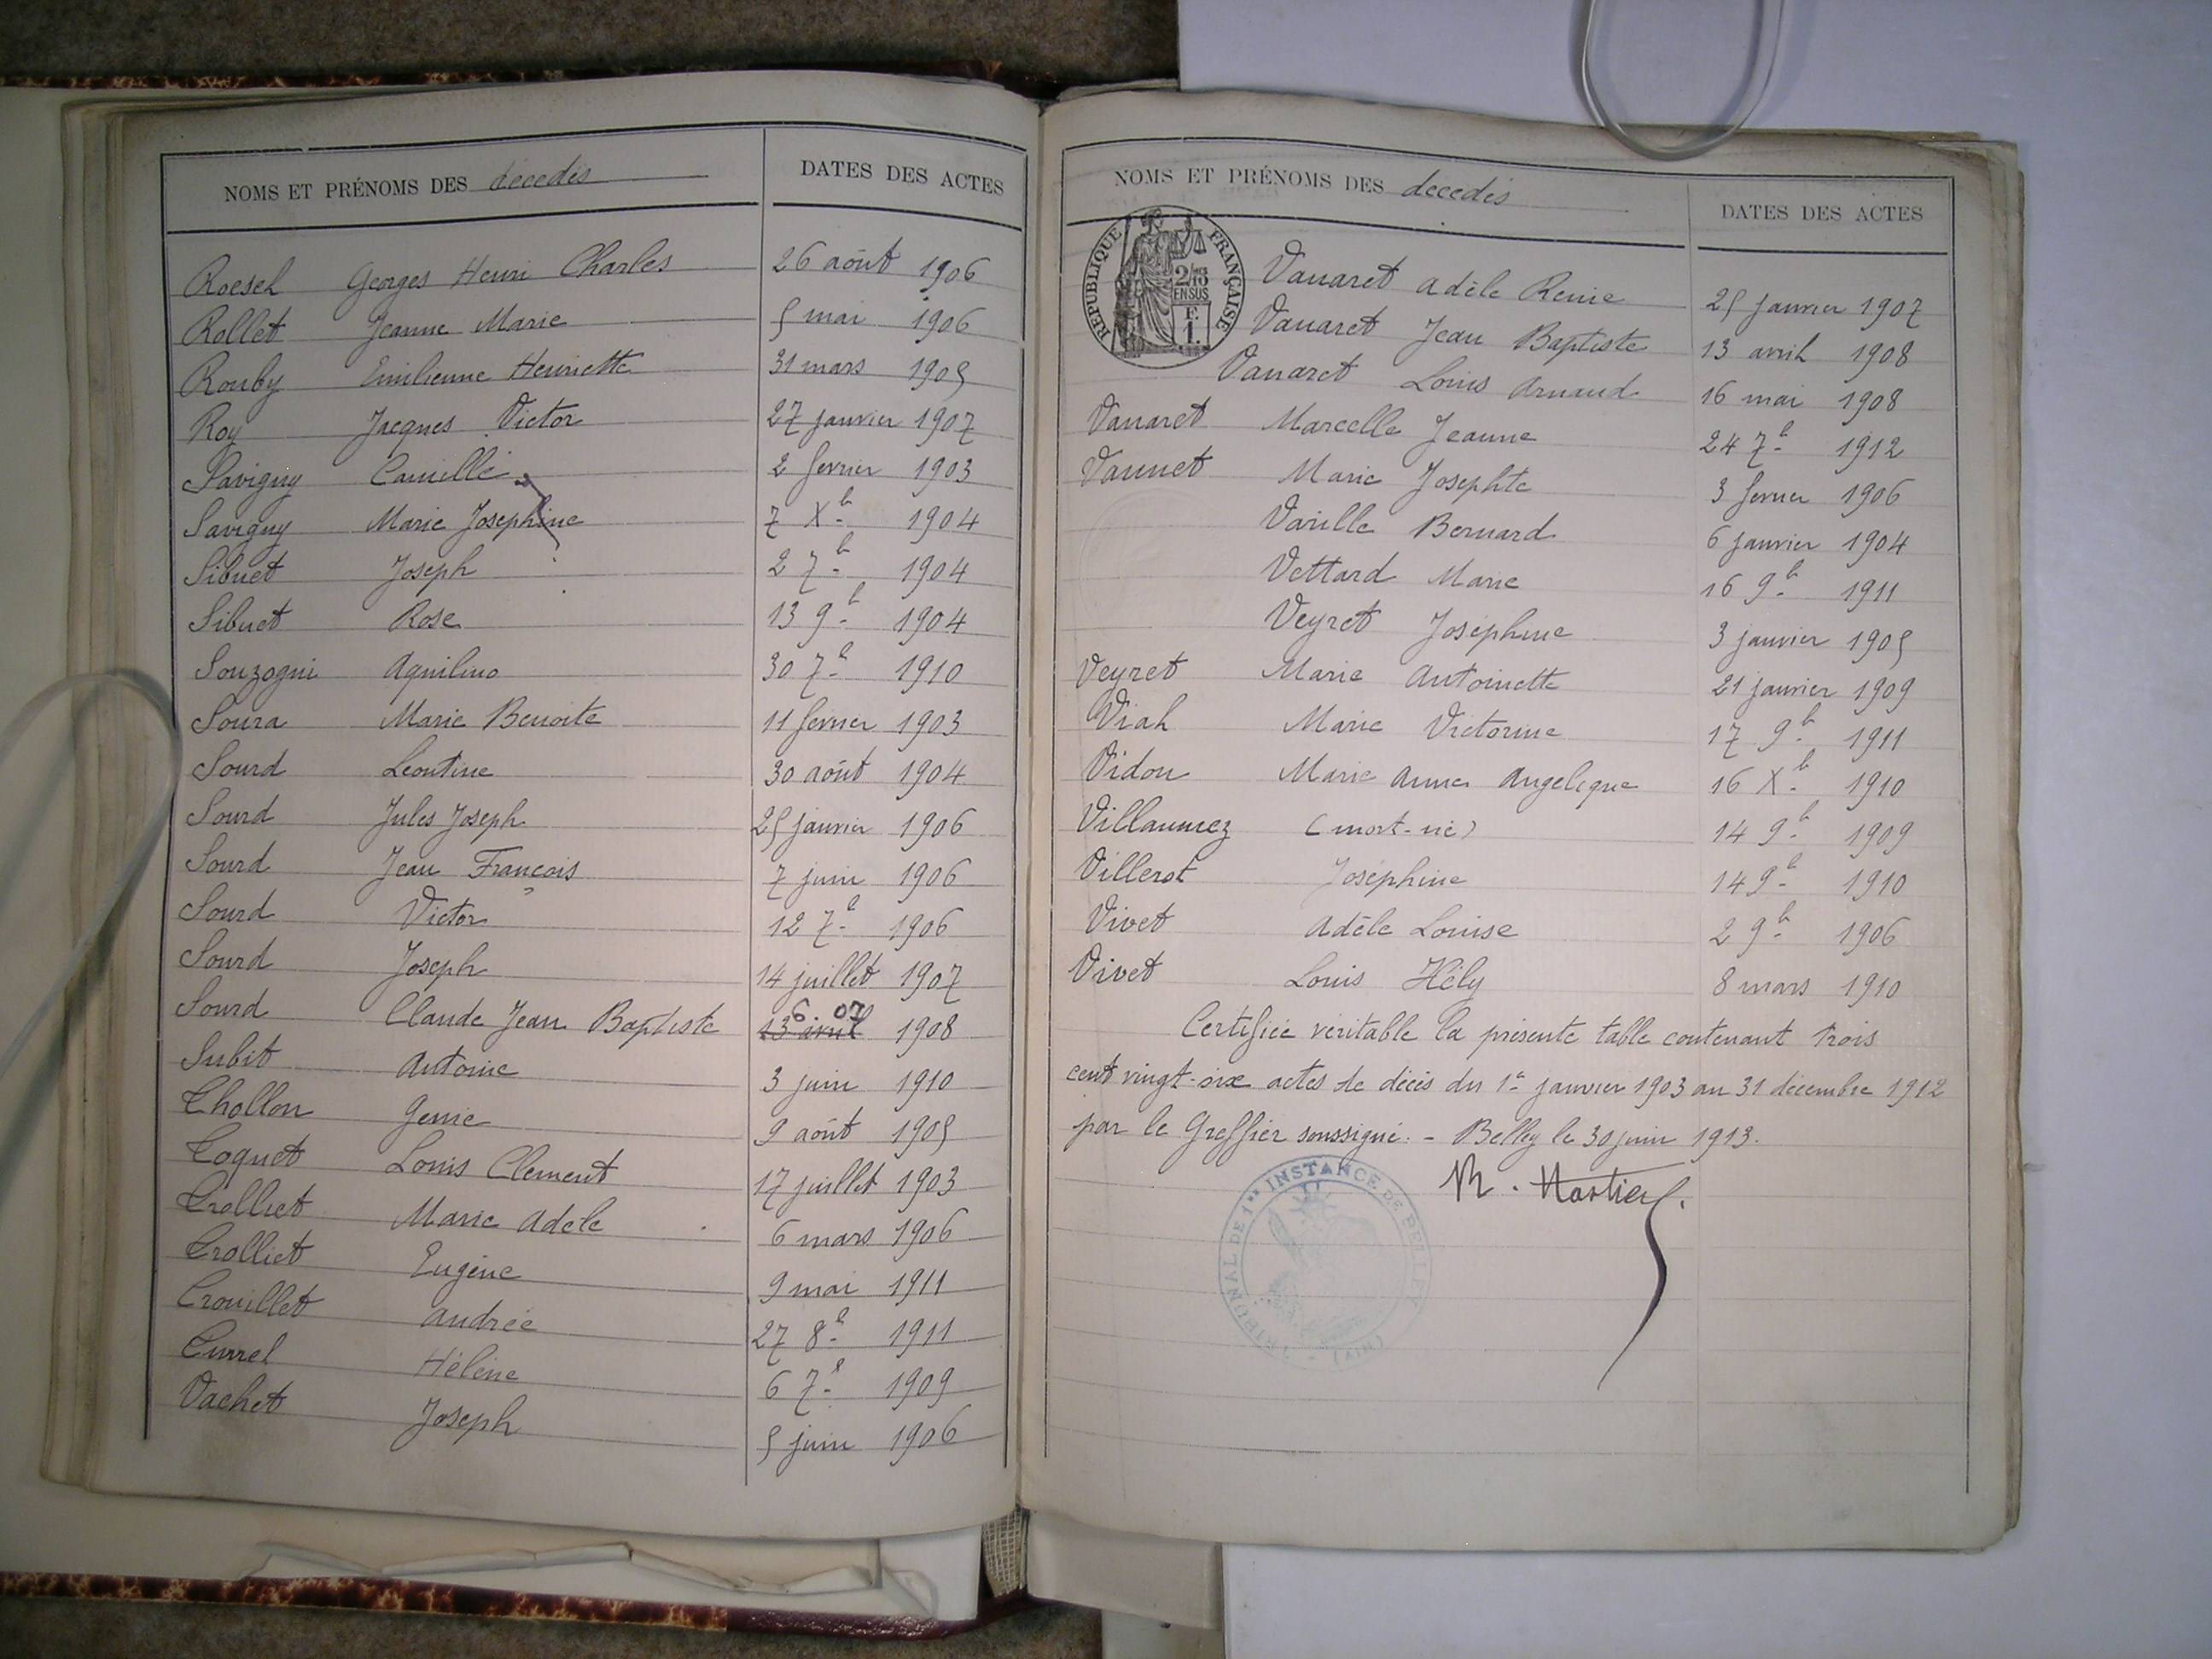 NOMS ET PRÉNOMS DES décédés DATES DES ACTES
Roesch Georges Henri Charles 26 août 1906
Rollet Jeanne Marie 5 mai 1906
Rouby Emilienne Henriette 31 mars 1905
Roy Jacques Victor 27 janvier 1907
Savigny Camille 2 février 1903
Savigny Marie Josephine 7 Xb 1904
Sibuet Joseph 2 7b 1904
Sibuet Rose 13 9b 1904
Souzogni Aquilino 30 7b 1910
Soura Marie Benoite 11 février 1903
Sourd Léontine 30 août 1904
Sourd Jules Joseph 25 janvier 1906
Sourd Jean François 7 juin 1906
Sourd Victor 12 7b 1906
Sourd Joseph 14 juillet 1907
6. 07
Sourd Claude Jean Baptiste 13 avril 1908
Subit Antoine 3 juin 1910
Thollon Genie 9 août 1905
Toquet Louis Clément 17 juillet 1903
Trolliet Marie Adèle 6 mars 1906
Trolliet Eugène 9 mai 1911
Trouillet Andrée 27 8b 1911
Turrel Hélène 6 7b 1909
Vachet Joseph 5 juin 1906
NOMS ET PRÉNOMS DES décédés DATES DES ACTES
RÉPUBLIQUE FRANÇAISE
2/10 EN SUS
F. 1.
Vanaret Adèle Renie 25 janvier 1907
Vanaret Jean Baptiste 13 avril 1908
Vanaret Louis Arnaud 16 mai 1908
Vanaret Marcelle Jeanne 24 7b 1912
Vannet Marie Josephte 3 février 1906
Varille Bernard 6 janvier 1904
Vettard Marie 16 9b 1911
Veyret Joséphine 3 janvier 1905
Veyret Marie Antoinette 21 janvier 1909
Viah Marie Victorine 17 9b 1911
Vidon Marie Anne Angelique 16 Xb 1910
Villaumez (mort-né) 14 9b 1909
Villerot Joséphine 14 9b 1910
Vivet Adèle Louise 2 9b 1906
Vivet Louis Hély 8 mars 1910
Certifiée véritable la présente table contenant trois
cent vingt-six actes de décès du 1er janvier 1903 au 31 décembre 1912
par le Greffier soussigné. - Belley le 30 juin 1913.
TRIBUNAL DE 1re INSTANCE DE BELLEY (AIN)